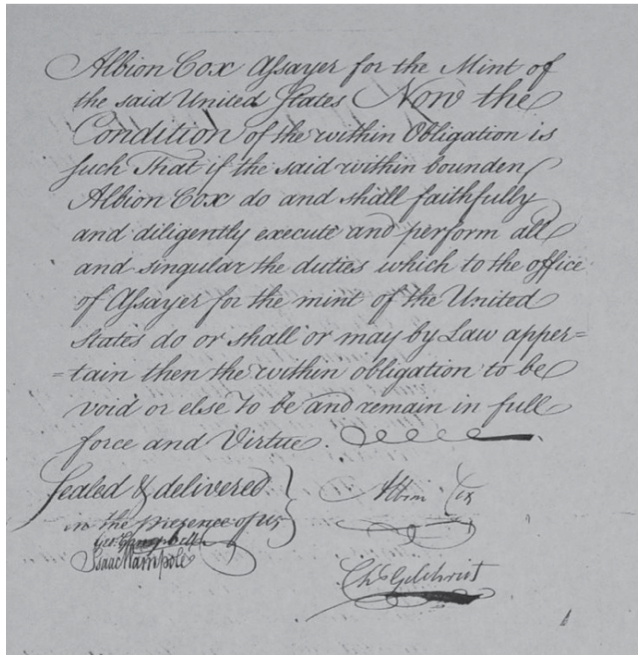 Albion Cox Assayer for the Mint of
the said United States Now the
Condition of the within Obligation is
such That if the said within bounden
Albion Cox do and shall faithfully
and diligently execute and perform all
and singular the duties which to the office
of Assayer for the mint of the United
States do or shall or may by Law apper=
=tain then the within obligation to be
void or else to be and remain in full
force and Virtue.
Sealed & delivered
in the presence of us
Geo: Campbell
Isaac Wampole
Albion Cox
Chs Gilchrist